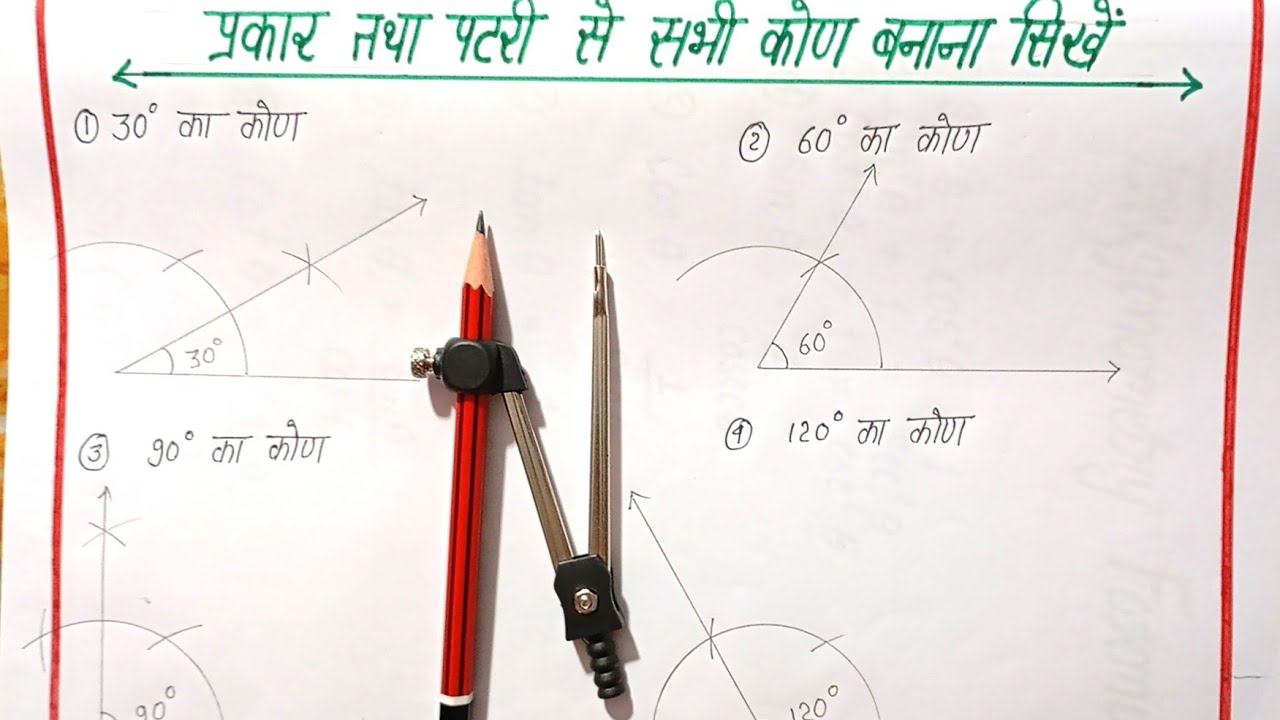 प्रकार तथा पटरी से सभी कोण बनाना सिखें
① 30° का कोण
② 60° का कोण
30°
60°
③ 90° का कोण
④ 120° का कोण
90°
120°